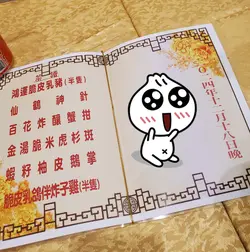 鴻運脆皮乳豬(半隻)
仙鶴神針
百花炸釀蟹拑
金湯脆米虎杉斑
蝦籽柚皮鵝掌
脆皮乳鴿伴炸子雞(半隻)
年十二月十八日晚